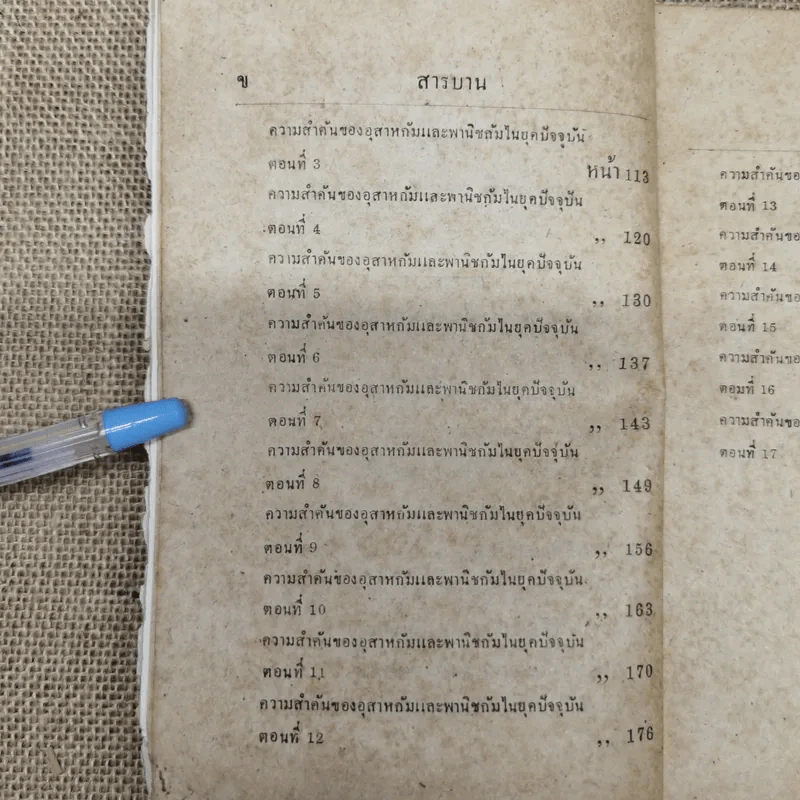 ข สารบาน
ความสำคันของอุสาหกัมและพานิชกัมไนยุคปัจจุบัน
ตอนที่ 3 หน้า 113
ความสำคันของอุสาหกัมและพานิชกัมไนยุคปัจจุบัน
ตอนที่ 4 ,, 120
ความสำคันของอุสาหกัมและพานิชกัมไนยุคปัจจุบัน
ตอนที่ 5 ,, 130
ความสำคันของอุสาหกัมและพานิชกัมไนยุคปัจจุบัน
ตอนที่ 6 ,, 137
ความสำคันของอุสาหกัมและพานิชกัมไนยุคปัจจุบัน
ตอนที่ 7 ,, 143
ความสำคันของอุสาหกัมและพานิชกัมไนยุคปัจจุบัน
ตอนที่ 8 ,, 149
ความสำคันของอุสาหกัมและพานิชกัมไนยุคปัจจุบัน
ตอนที่ 9 ,, 156
ความสำคันของอุสาหกัมและพานิชกัมไนยุคปัจจุบัน
ตอนที่ 10 ,, 163
ความสำคันของอุสาหกัมและพานิชกัมไนยุคปัจจุบัน
ตอนที่ 11 ,, 170
ความสำคันของอุสาหกัมและพานิชกัมไนยุคปัจจุบัน
ตอนที่ 12 ,, 176
ความสำคันของ
ตอนที่ 13
ความสำคันของ
ตอนที่ 14
ความสำคันของ
ตอนที่ 15
ความสำคันของ
ตอนที่ 16
ความสำคันของ
ตอนที่ 17